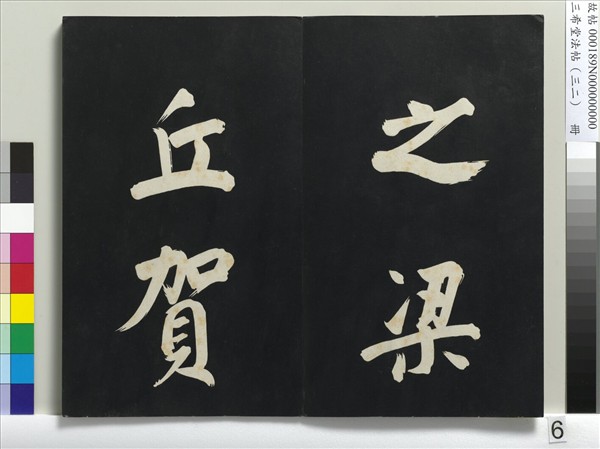 之梁
丘賀
故帖 000189N000000000
三希堂法帖（三二） 冊
6